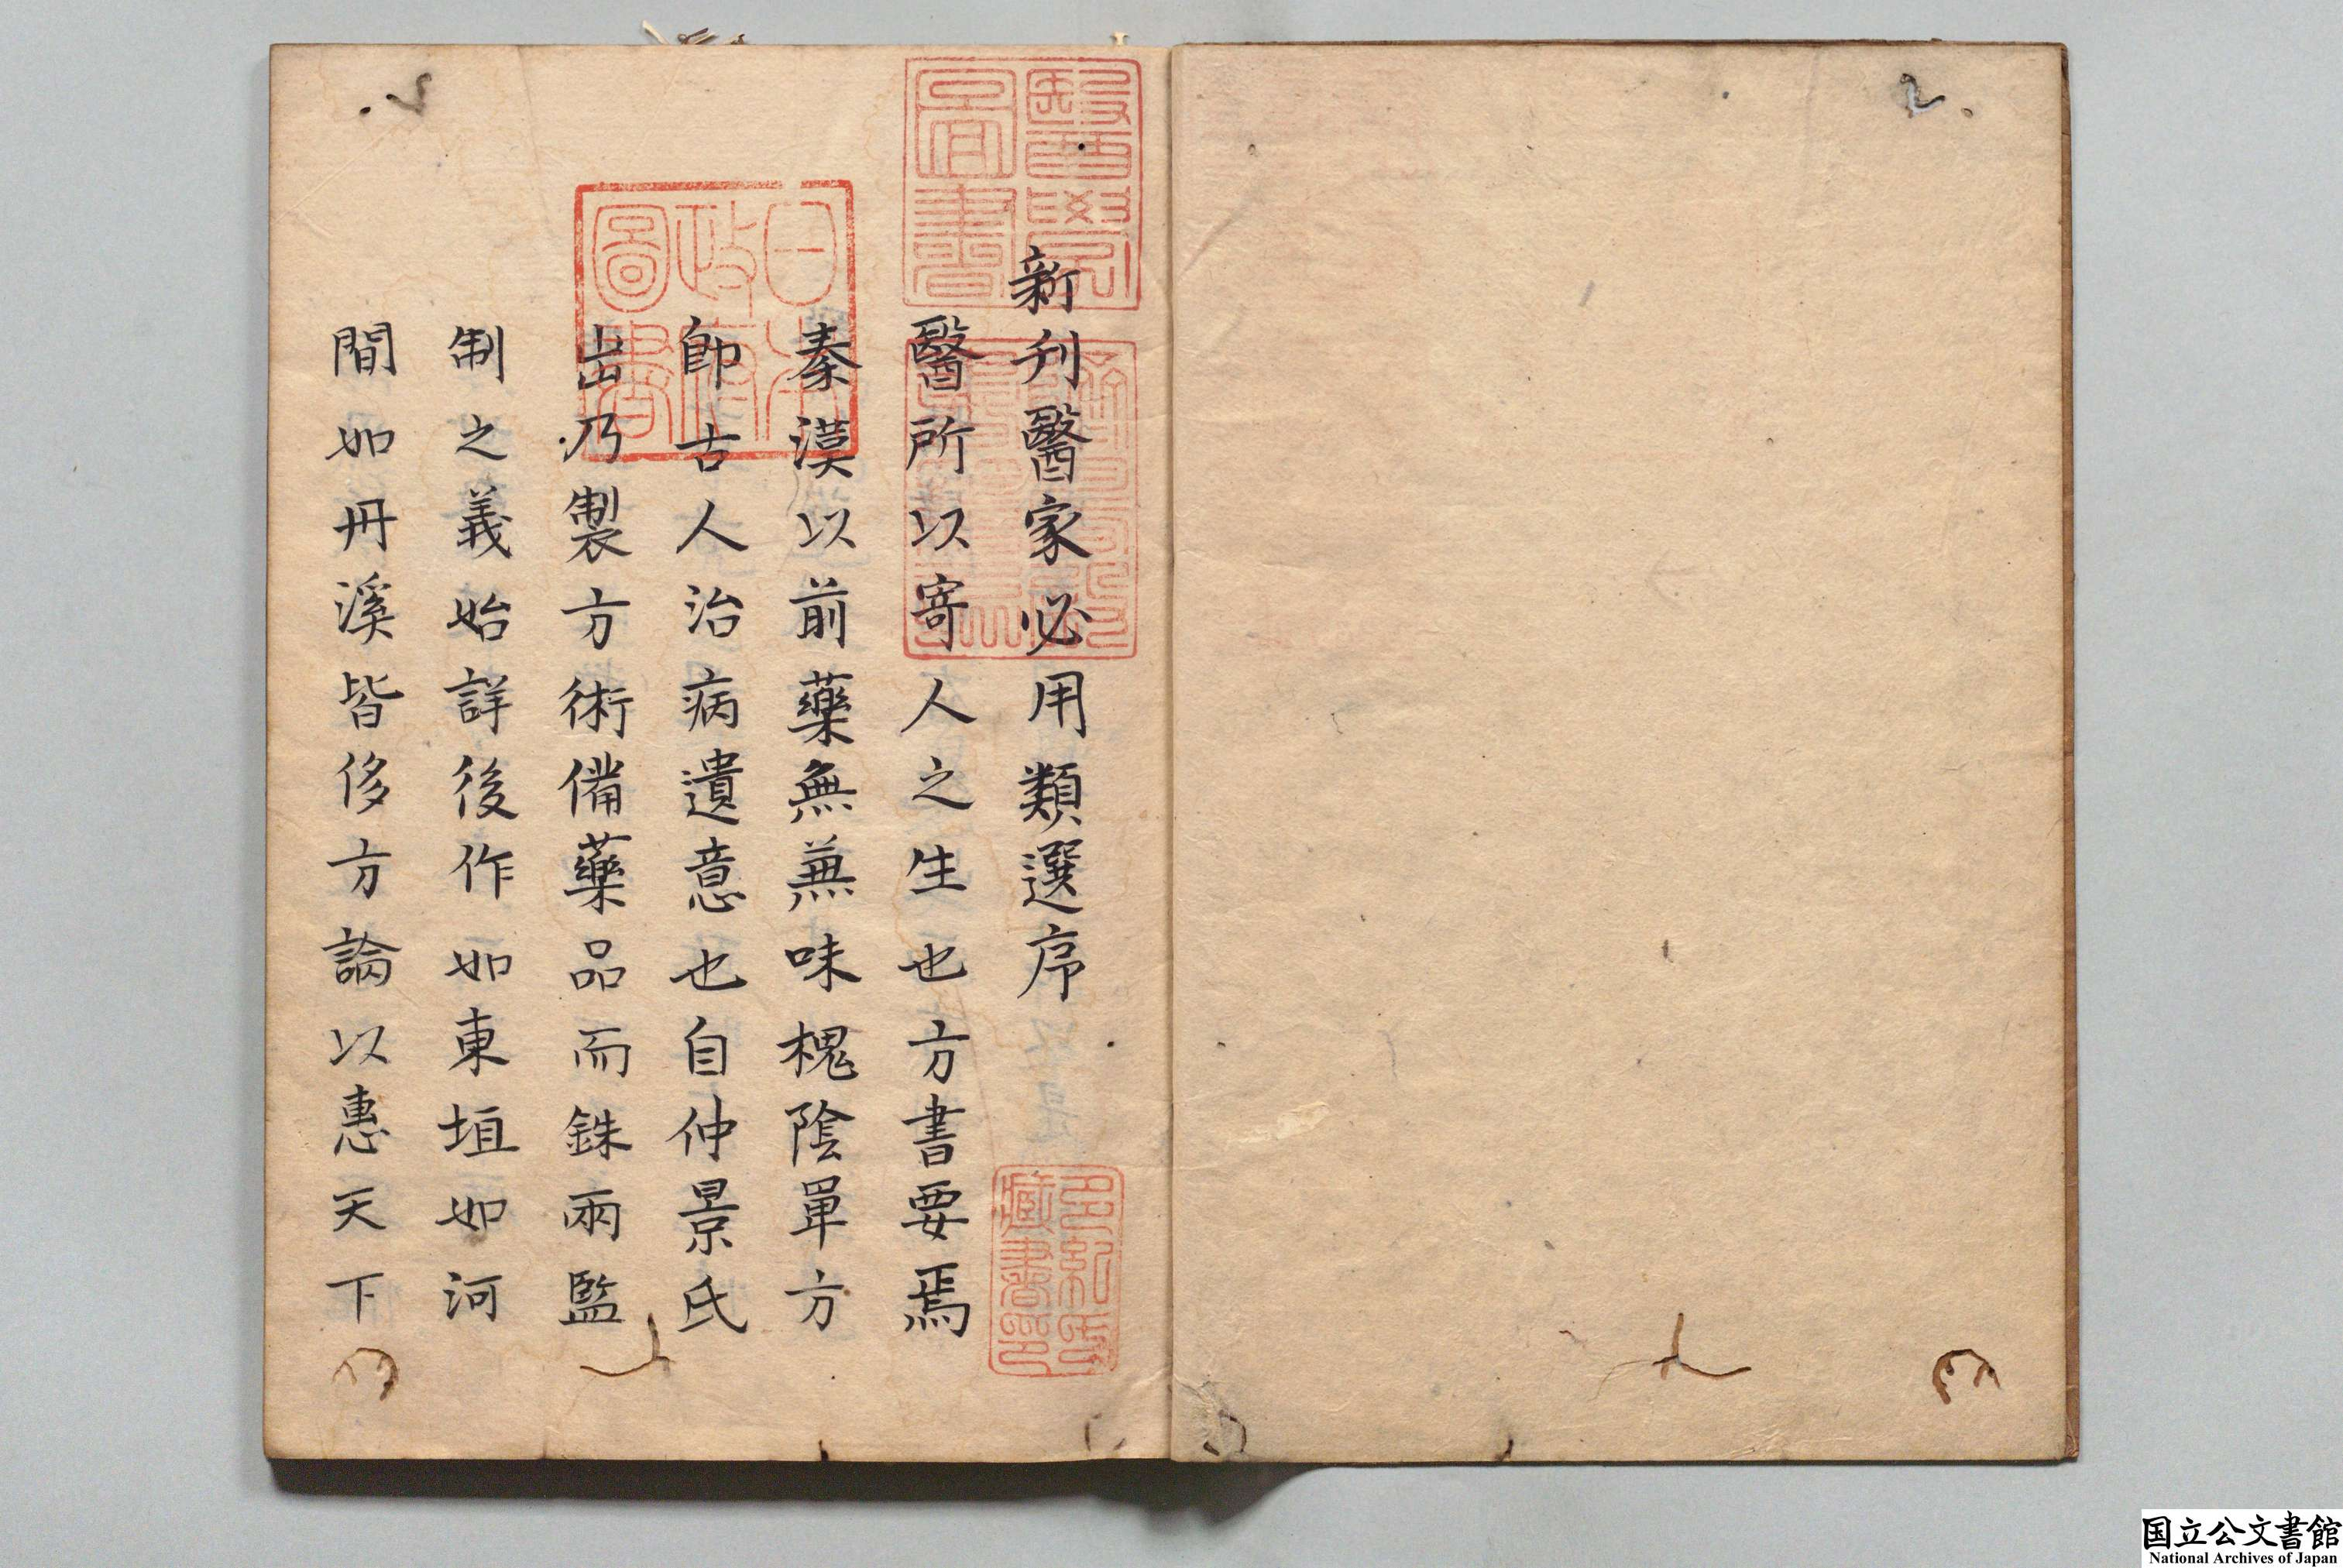 新刋醫家必用類選序
醫所以寄人之生也方書要焉
秦漢以前藥無兼味槐陰單方
卽古人治病遺意也自仲景氏
出乃製方術備藥品而銖兩監
制之義始詳後作如東垣如河
間如丹溪皆侈方論以惠天下
醫學圖書
躋壽館書籍記
日本政府圖書
多紀氏藏書印
国立公文書館
National Archives of Japan